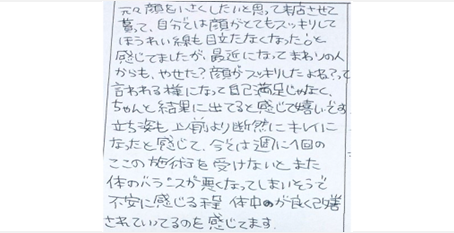 元々顔を小さくしたいと思って来店させて
貰って、自分では顔がとてもスッキリして
ほうれい線も目立たなくなった!と
感じてましたが、最近になってまわりの人
からも、やせた?顔がスッキリしたよね?って
言われる様になって自己満足じゃなく、
ちゃんと結果に出てると感じて嬉しいです
立ち姿も以前より断然にキレイに
なったと感じて、今では週に1回の
ここの施術を受けないとまた
体のバランスが悪くなってしまいそうで
不安に感じる程 体中が良く改善
されていってるのを感じてます。